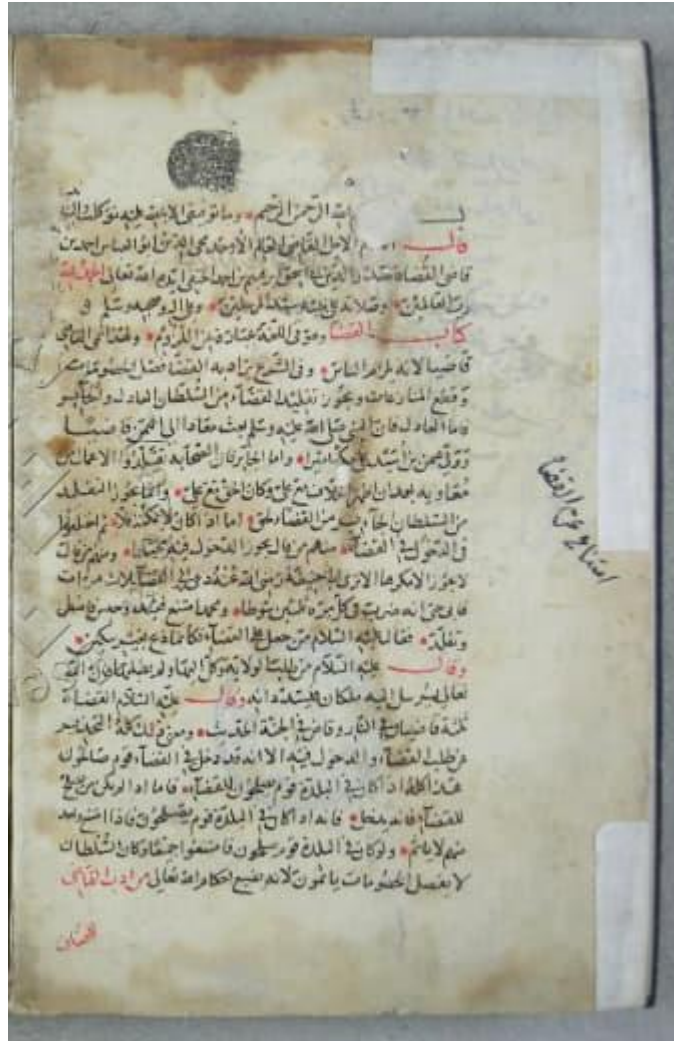 بسم الله الرحمن الرحيم وما توفيقي الا بالله عليه توكلت واليه
قال الامام الاجل القاضي العالم الاوحد محيي الدين ابو العباس احمد بن
قاضي القضاة احمد الحنفي ايده الله تعالى الحمد لله
رب العالمين وصلاته على نبيه سيد المرسلين وعلى اله وصحبه وسلم
كتاب القضا وهو في اللغة عبارة عن اللزوم ولهذا سمي القاضي
قاضيا لانه يلزم الناس وفي الشرع يراد به القضا فصل الخصومات
وقطع المنازعات ويجوز تقليد القضاء من السلطان العادل والجاير
فاما العادل فان النبي صلى الله عليه وسلم بعث معاذا الى اليمن قاضيا
وولى اسيد على مكة اميرا واما الجاير فان الصحابة تقلدوا الاعمال من
معاوية بعد ان اظهر الخلاف مع علي وكان الحق مع علي وانما يجوز التقليد
من السلطان الجاير من القضاء بحق اما اذا كان لا يمكنه فلا ثم اختلفوا
في الدخول في القضاء منهم من قال يجوز الدخول فيه مختارا ومنهم من قال
لا يجوز الا مكرها الا ترى ابا حنيفة رضي الله عنه دعي الى القضا ثلاث مرات
فابى حتى انه ضرب في كل مرة ثلثين سوطا ومحمد امتنع حتى قيد وحبس
وتقلد فقال عليه السلام من جعل على القضاء فكانما ذبح بغير سكين
وقال عليه السلام من طلبنا لولاية وكل اليها ولم
تعالى يرسل اليه ملكان يسددانه وقال عليه السلام القضاة
ثلثة قاضيان في النار وقاض في الجنة الحديث ومعنى ذلك كله التحذير
عن طلب القضاء والدخول فيه الا انه قد دخل في القضاء قوم صالحون
هذا كله اذا كان في البلدة قوم يصلحون للقضاء فاما اذا لم يكن من يصلح
للقضاء فانه يدخل فانه اذا كان في البلدة قوم يصلحون فاذا امتنع واحد
منهم لا ياثم ولو كان في البلدة قوم يصلحون فامتنعوا جميعا وكان السلطان
لا يفصل الخصومات ياثمون لانه تضييع احكام الله تعالى من ادب القاضي
للخصاف
امتناع عن القضا